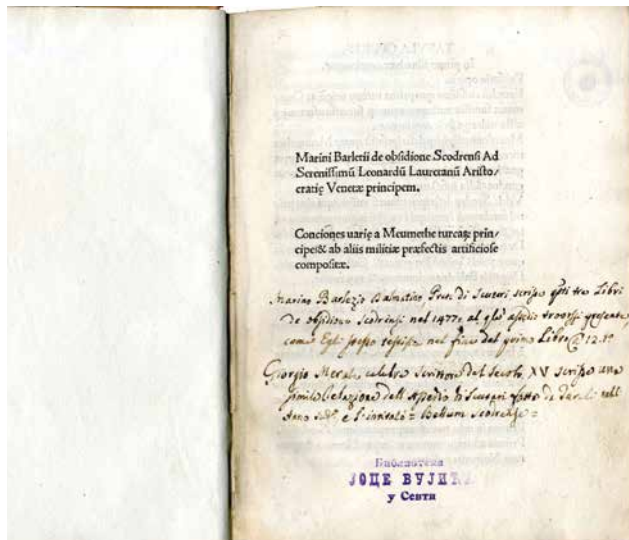 Marini Barletii de obsidione Scodrensi Ad
Serenissimū Leonardū Lauretanū Aristo/
cratię Venetæ principem.
Conciones uarię a Meumethe turcaꝝ prin/
cipe:& ab aliis militiæ præfectis artificiose
compositæ.
Marino Barlezio Dalmatino, Prete di Scutari scrisse tre Libri
de obsidione Scodrensi nel 1477
come Egli stesso nel fine del primo Libro
Giorgio Merula celebre Scrittore del Secolo XV scrisse una
simile Relazione dell'Assedio di Scutari fatto da
Anno e l'intitolò = Bellum Scodrense =
Библиотека
ЈОЦЕ ВУЈИЋА
у Сенти